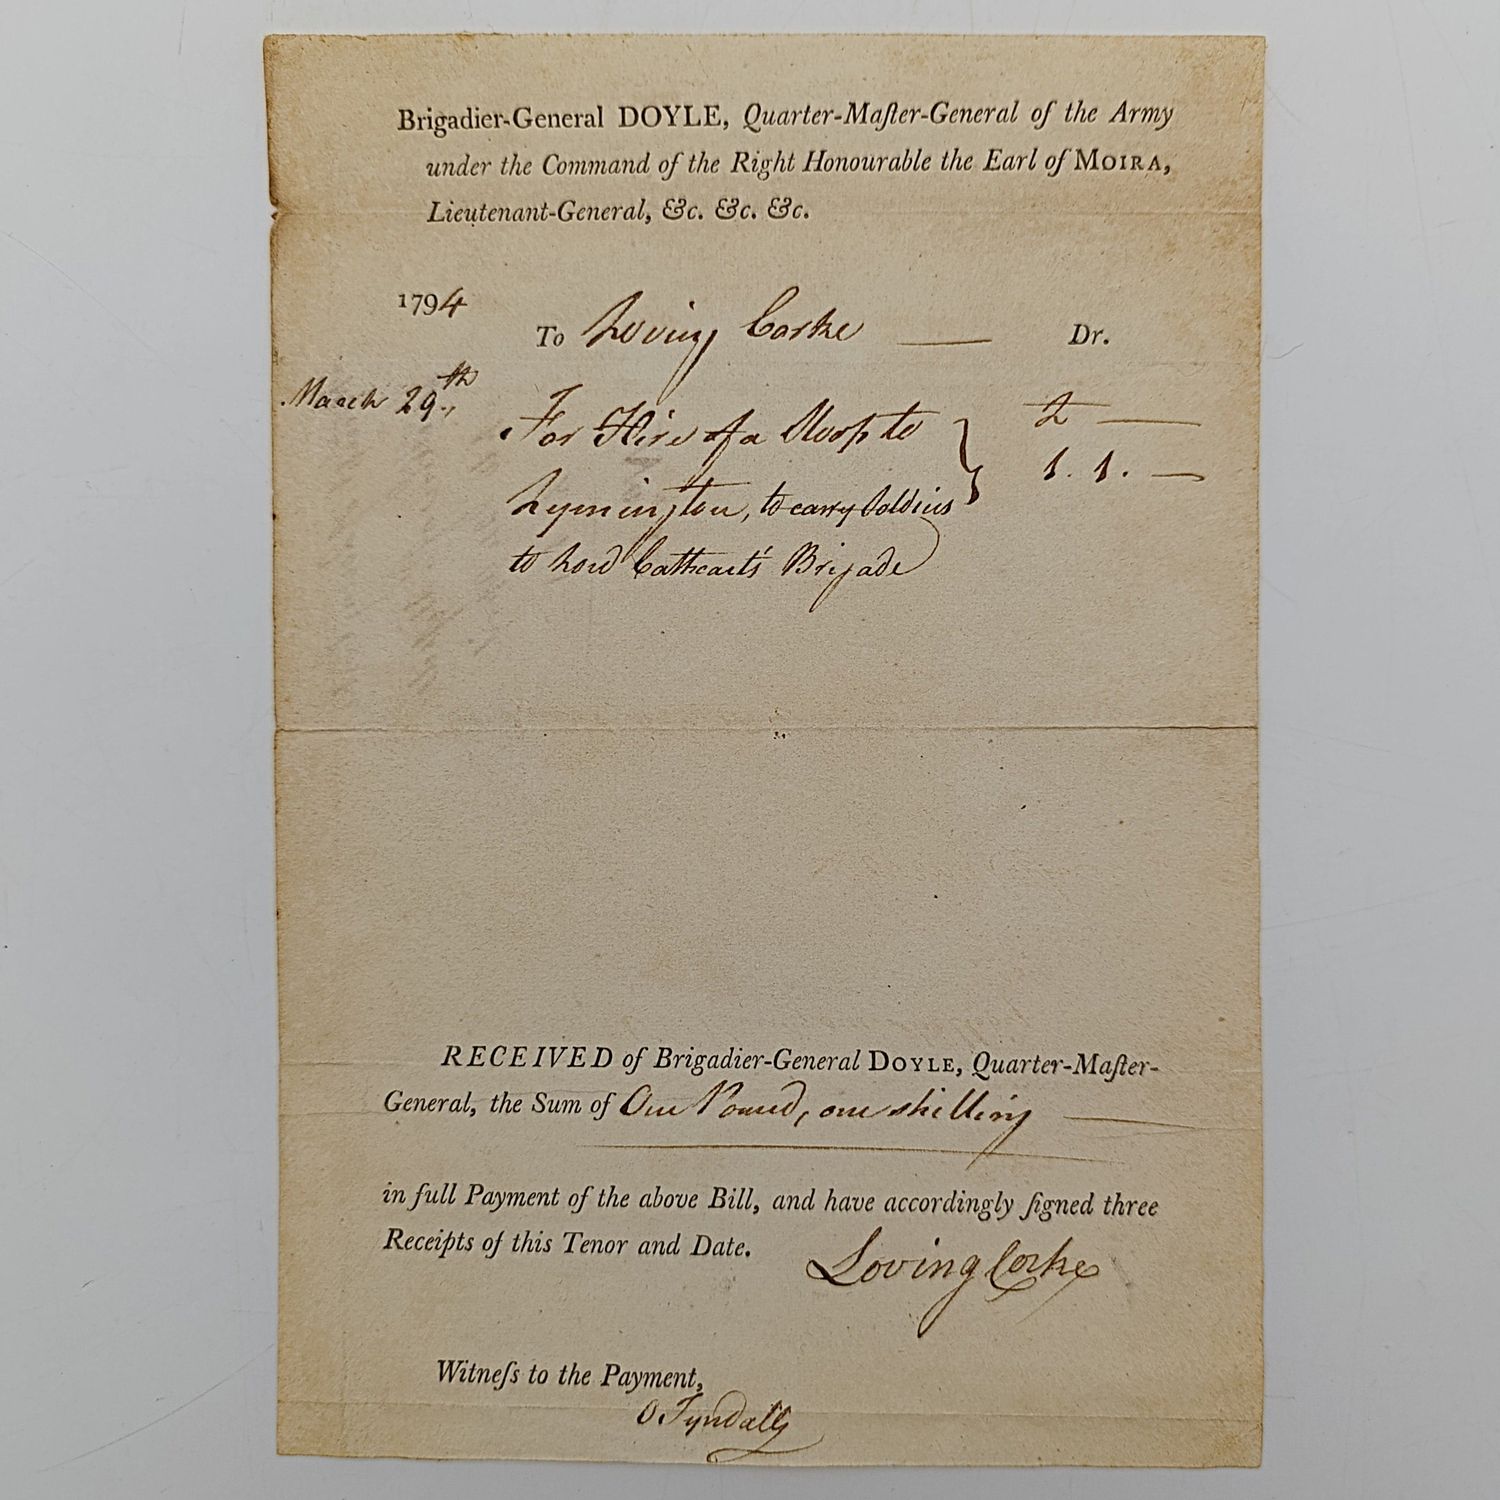 Brigadier-General DOYLE, Quarter-Maſter-General of the Army
under the Command of the Right Honourable the Earl of MOIRA,
Lieutenant-General, &c. &c. &c.
1794
To Loving Corke — Dr.
March 29th
For Hire of a to £ —
Lymington, to carry Soldiers 1. 1. —
to Lord Cathcart's Brigade
RECEIVED of Brigadier-General DOYLE, Quarter-Maſter-
General, the Sum of One Pound, one shilling —
in full Payment of the above Bill, and have accordingly ſigned three
Receipts of this Tenor and Date.
Loving Corke
Witneſs to the Payment,
O Tyndall